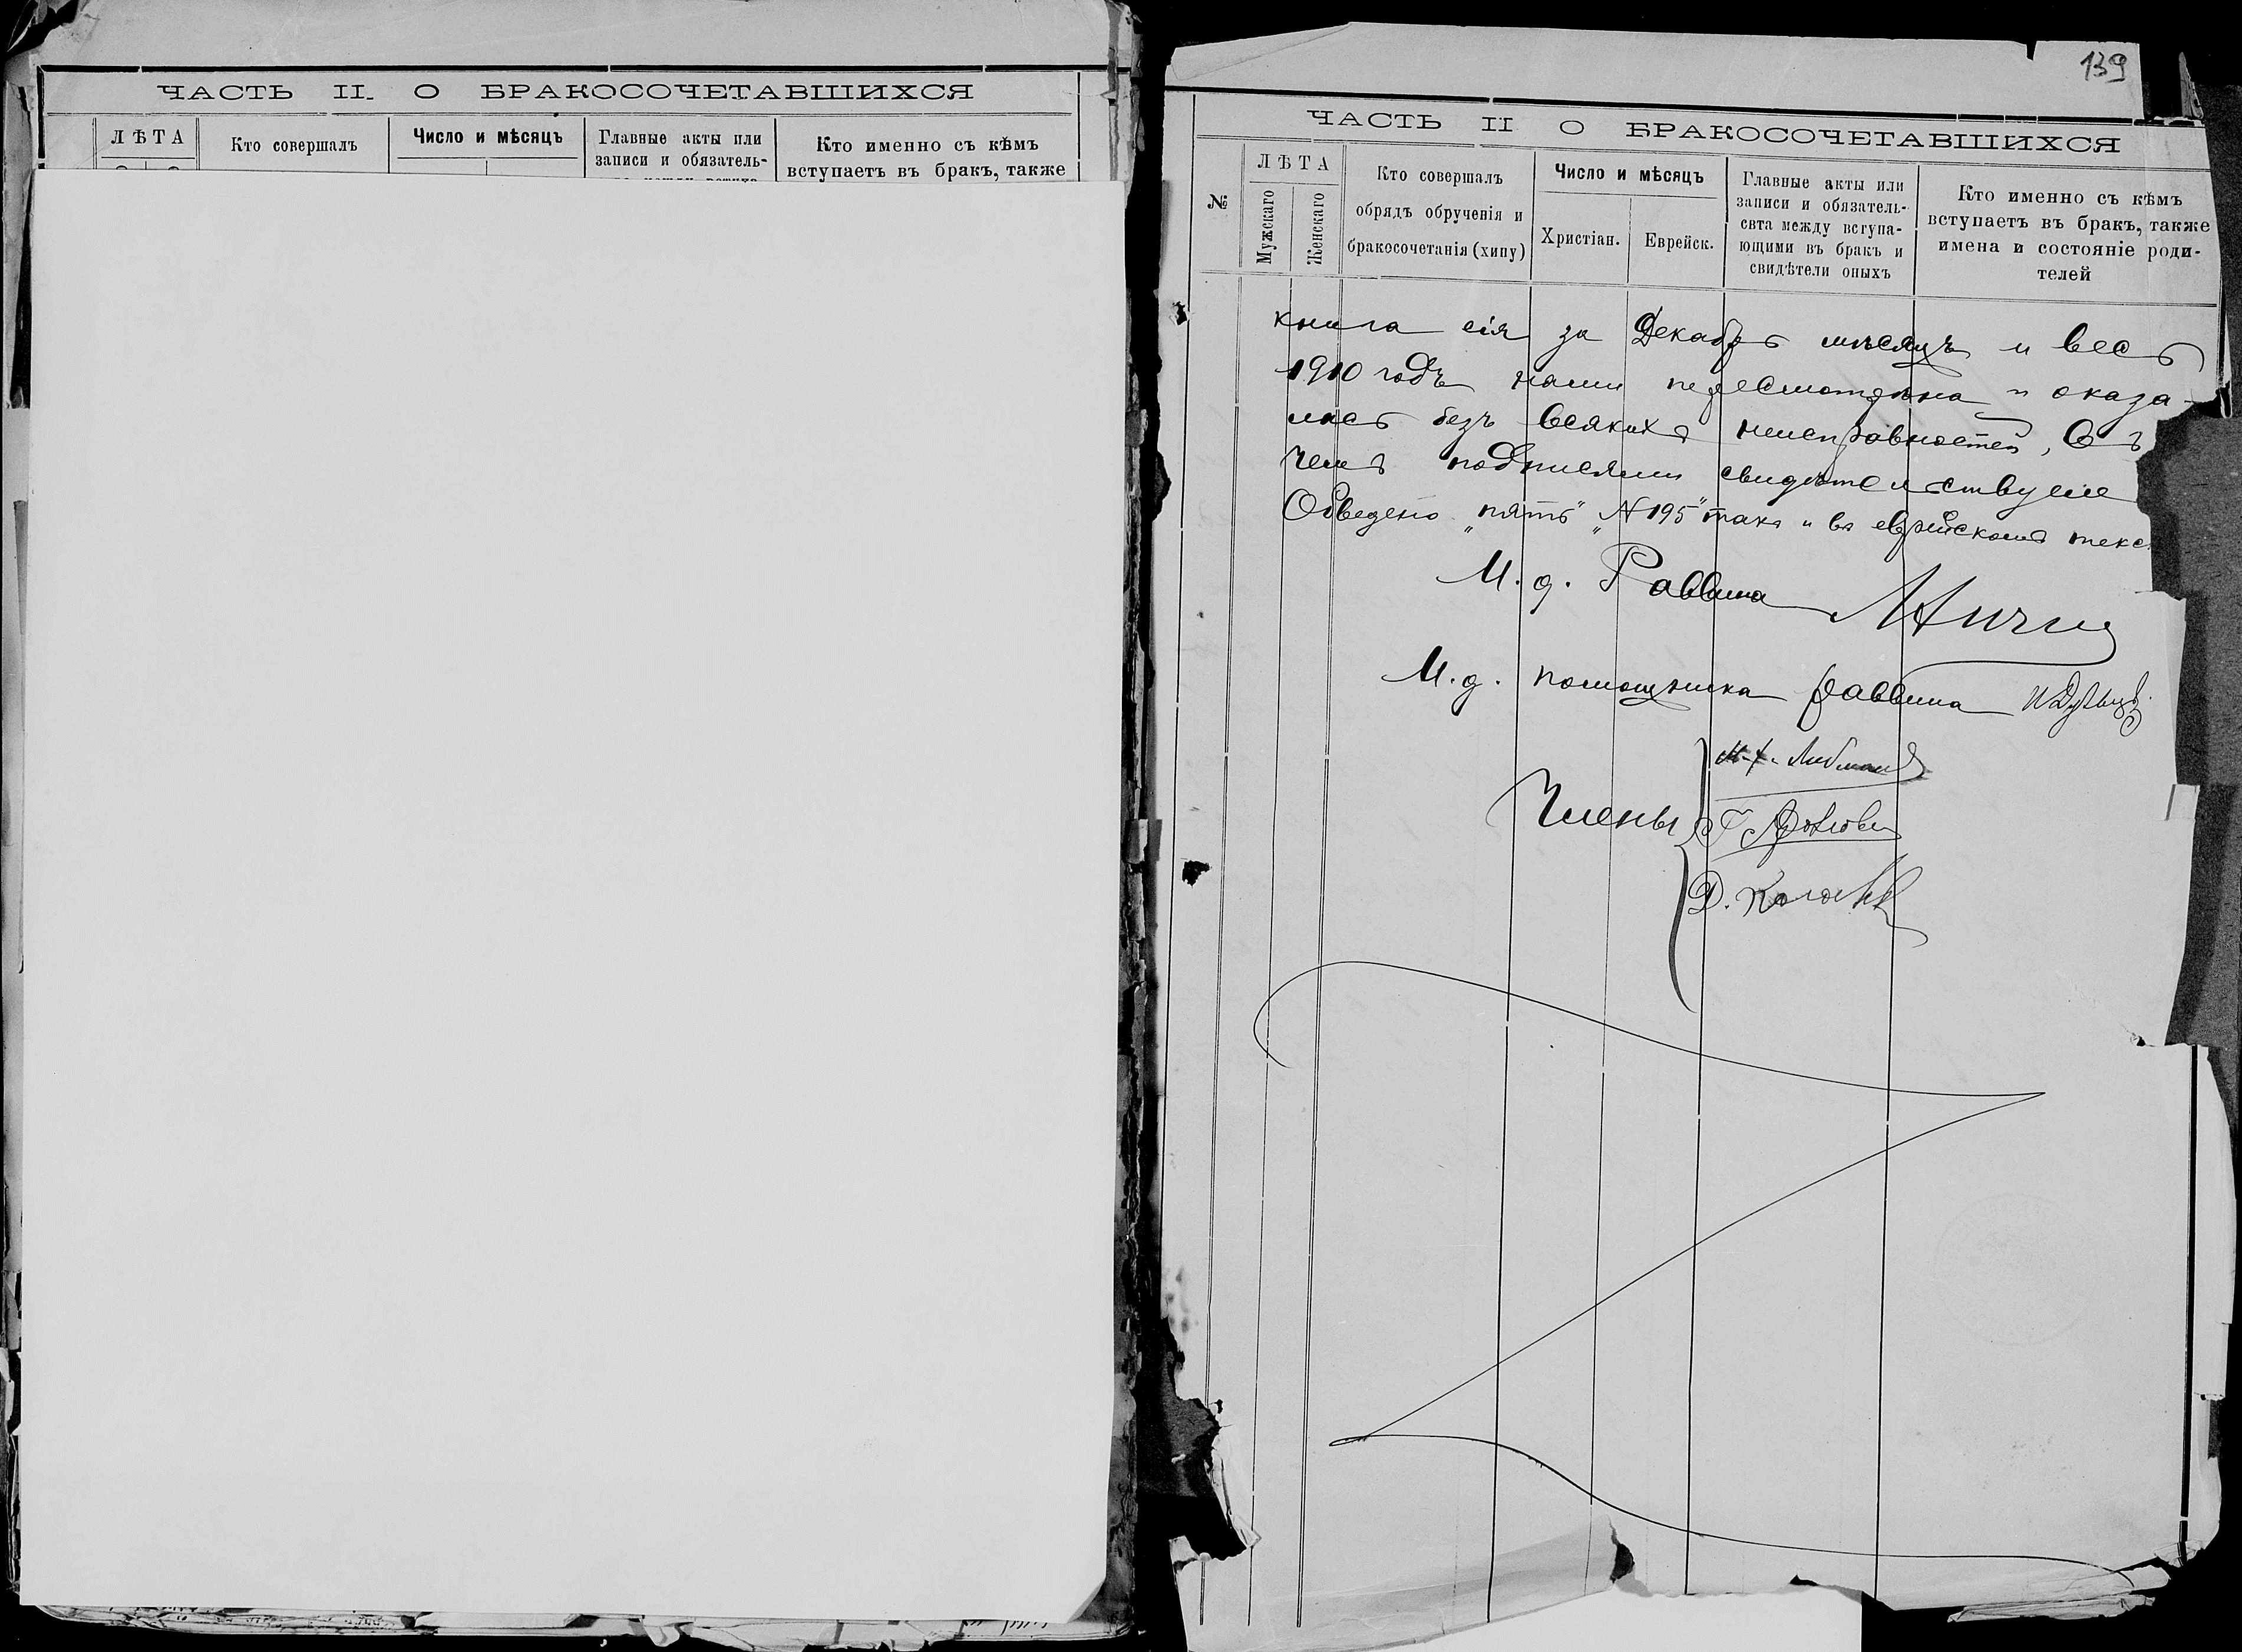 ЧАСТЬ II. О БРАКОСОЧЕТАВШИХСЯ
ЛѢТА
Кто совершалъ
Число и мѣсяцъ
Главные акты или
записи и обязатель-
Кто именно съ кѣмъ
вступаетъ въ бракъ, также
139
ЧАСТЬ II О БРАКОСОЧЕТАВШИХСЯ
№
ЛѢТА
Мужескаго
Женскаго
Кто совершалъ
обрядъ обрученія и
бракосочетанія (хипу)
Число и мѣсяцъ
Христіан.
Еврейск.
Главные акты или
записи и обязатель-
свта между вступа-
ющими въ бракъ и
свидѣтели оныхъ
Кто именно съ кѣмъ
вступаетъ въ бракъ, также
имена и состояніе роди-
телей
книга сія за Декабрь мѣсяцъ и весь
1910 годъ нами пересмотрѣна и оказа-
лась безъ всякихъ неисправностей, въ
чемъ подписями свидѣтельствуемъ
Обведено "пять" "№ 195" такъ и въ еврейскомъ текс
И. д. Раввина
И. д. помощника раввина
Члены
Либманъ
Г.
Д. Коган